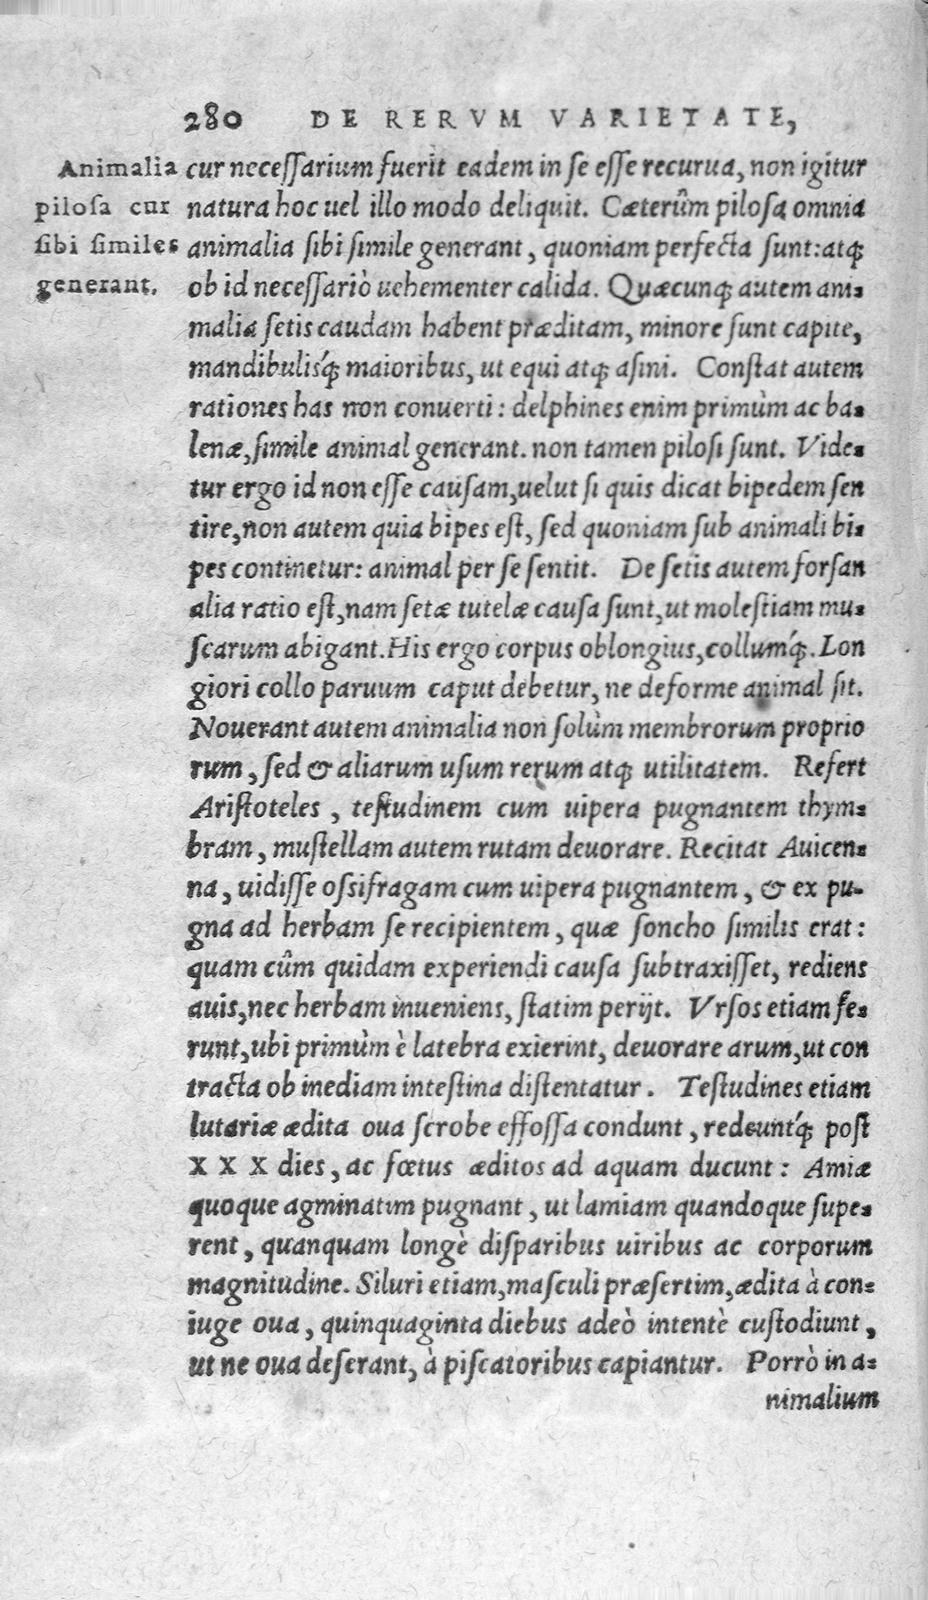 280 DE RERVM VARIETATE,
Animalia
piloſa cur
ſibi ſimiles
generant.
cur neceſſarium fuerit eadem in ſe eſſe recurua, non igitur
natura hoc uel illo modo deliquit. Cæterûm piloſa omnia
animalia ſibi ſimile generant, quoniam perfecta ſunt: atq́;
ob id neceſſariò uehementer calida. Quæcunq; autem ani-
malia ſetis caudam habent præditam, minore ſunt capite,
mandibulisq́; maioribus, ut equi atq; aſini. Conſtat autem
rationes has non conuerti: delphines enim primùm ac ba-
lenæ, ſimile animal generant. non tamen piloſi ſunt. Vide-
tur ergo id non eſſe cauſam, uelut ſi quis dicat bipedem ſen
tire, non autem quia bipes eſt, ſed quoniam ſub animali bi-
pes continetur: animal per ſe ſentit. De ſetis autem forſan
alia ratio eſt, nam ſetæ tutelæ cauſa ſunt, ut moleſtiam mu-
ſcarum abigant. His ergo corpus oblongius, collumq́;. Lon
giori collo paruum caput debetur, ne deforme animal ſit.
Nouerant autem animalia non ſolùm membrorum proprio
rum, ſed & aliarum uſum rerum atq; utilitatem. Refert
Ariſtoteles, teſtudinem cum uipera pugnantem thym-
bram, muſtellam autem rutam deuorare. Recitat Auicen-
na, uidiſſe oſſifragam cum uipera pugnantem, & ex pu-
gna ad herbam ſe recipientem, quæ ſoncho ſimilis erat:
quam cûm quidam experiendi cauſa ſubtraxiſſet, rediens
auis, nec herbam inueniens, ſtatim perijt. Vrſos etiam fe-
runt, ubi primùm è latebra exierint, deuorare arum, ut con
tracta ob inediam inteſtina diſtentatur. Teſtudines etiam
lutariæ ædita oua ſcrobe effoſſa condunt, redeuntq́; poſt
XXX dies, ac fœtus æditos ad aquam ducunt: Amiæ
quoque agminatim pugnant, ut lamiam quandoque ſupe-
rent, quanquam longè diſparibus uiribus ac corporum
magnitudine. Siluri etiam, maſculi præſertim, ædita à con-
iuge oua, quinquaginta diebus adeò intentè cuſtodiunt,
ut ne oua deſerant, à piſcatoribus capiantur. Porrò in a-
nimalium